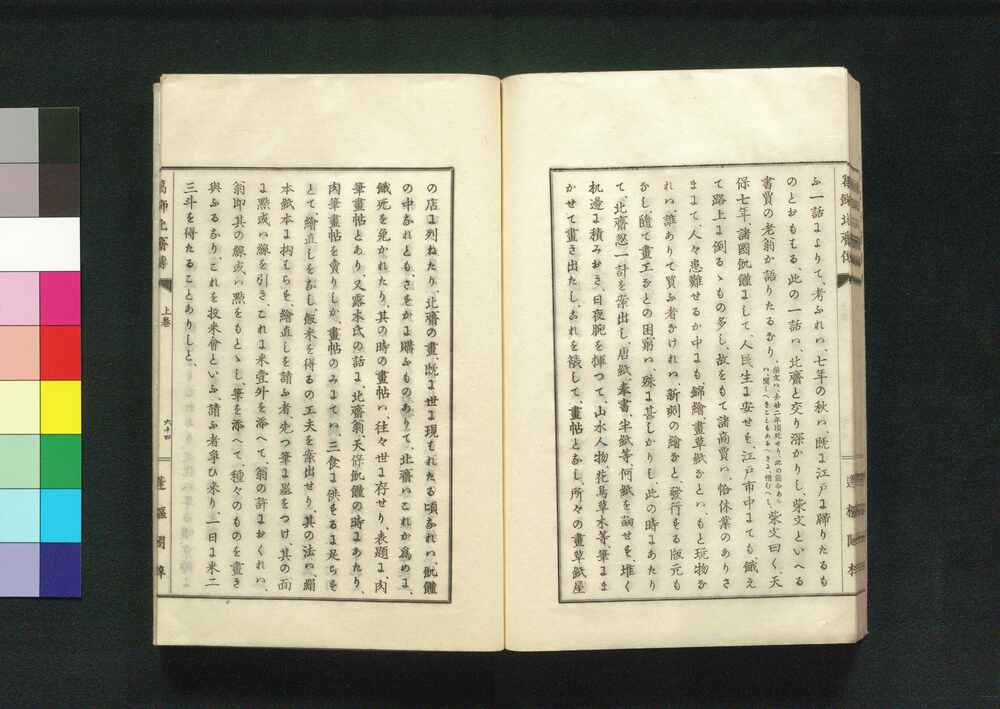 ふ一話によりて、考ふれハ、七年の秋ハ、既に江戸に歸りたるも
のとおもはる、此の一話ハ、北齋と交り深かりし、柴文といへる
書賈の老翁か語りたるなり、
柴文曰く、天
保七年諸國飢饉にして、人民生に安せす、江戸市中にても、餓え
て路上に倒るゝもの多し、故をもて諸商賈ハ、恰休業のありさ
まにて、人々患難せるか中にも、錦繪、畫草紙なとハ、もと玩物な
れハ、誰ありて買ふ者なけれハ、新刻の繪なと、發行する版元も
なし、隨て畫工なとの困窮ハ、殊に甚しかりし、此の時にあたり
て、北齋忽一計を案出し、唐紙、奉書、半紙等、何紙を論せす、堆く
机邊に積みおき、日夜腕を揮つて、山水人物、花鳥草木等、筆にま
かせて畫き出たし、これを綴して、畫帖となし、所々の畫草紙屋
の店に列ねたり、北齋の畫、既に世に現もれたる頃なれハ、飢饉
の中なれとも、さをかに購ふものありて、北齋ハこれか爲めに、
餓死を免かれたり、其の時の畫帖ハ、往々世に存せり、表題に、肉
筆畫帖とあり、又露木氏の話に、北齋翁、天保飢饉の時にあたり、
肉筆畫帖を賣りしか、畫帖のみにてハ、三食に供するに足らす
とて、繪直しをなし、飯米を得るの工夫を案出せり、其の法ハ、絹
本紙本に拘もらす、繪直しを請ふ者、先つ筆に墨をつけ、其の面
に點或ハ線を引き、これに米壹升を添へて、翁の許におくれハ、
翁即其の線或ハ點をもとゝし、筆を添へて、種々のものを畫き
與ふるなり、これを投米會といふ、請ふ者爭ひ來り、一日に米二
三斗を得たることありしと、
葛飾北齋傳
上卷
六十四
蓬樞閣梓